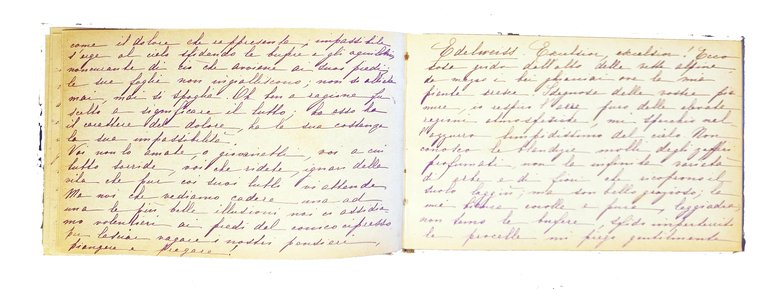 come il dolore che rappresenta; impassibile
s'erge al cielo sfidando le bufere e gli aquiloni
noncurante di ciò che avviene ai suoi piedi;
le sue foglie non ingialliscono, non si
mai, mai si spoglia. Oh ben a ragione fu
scelto a significare il lutto; ha esso
il carattere del dolore, ha la sua costanza
la sua impassibilità.
Voi non lo amate, o giovanette, voi a cui
tutto sorride, voi che ridete, ignare della
vita che pur coi suoi lutti vi attende
Ma noi che vediamo cadere una ad
una le più belle illusioni noi ci assidia-
mo volentieri ai piedi del conico cipresso
per lasciar vagare i nostri pensieri,
piangere e pregare!
Edelweiss Excelsior, excelsior! Ecco
il mio grido dall'alto delle vette alpine
da mezzo i bei ghiacciai ove la mia
pianta cresce. Sdegnosa delle vostre pia-
nure, io respiro l'aere puro delle elevate
regioni atmosferiche, mi specchio nel
l'azzurro limpidissimo del cielo. Non
conosco le blandizie molli degli zeffiri
profumati non le infinite varietà
di erbe e di fiori che ricoprono il
suolo laggiù; ma son bello grazioso; la
mia bianca corolla è pura, leggiadra
non temo le bufere, sfido imperterrito
le procelle mi piego gentilmente